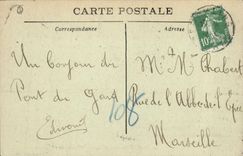 CARTE POSTALE
Correspondance
Adresse
Un bonjour du
Pont du Gard
Edmond
108
Mr Mme Chabert
Rue de l'Abbé de l'Epée
Marseille
10